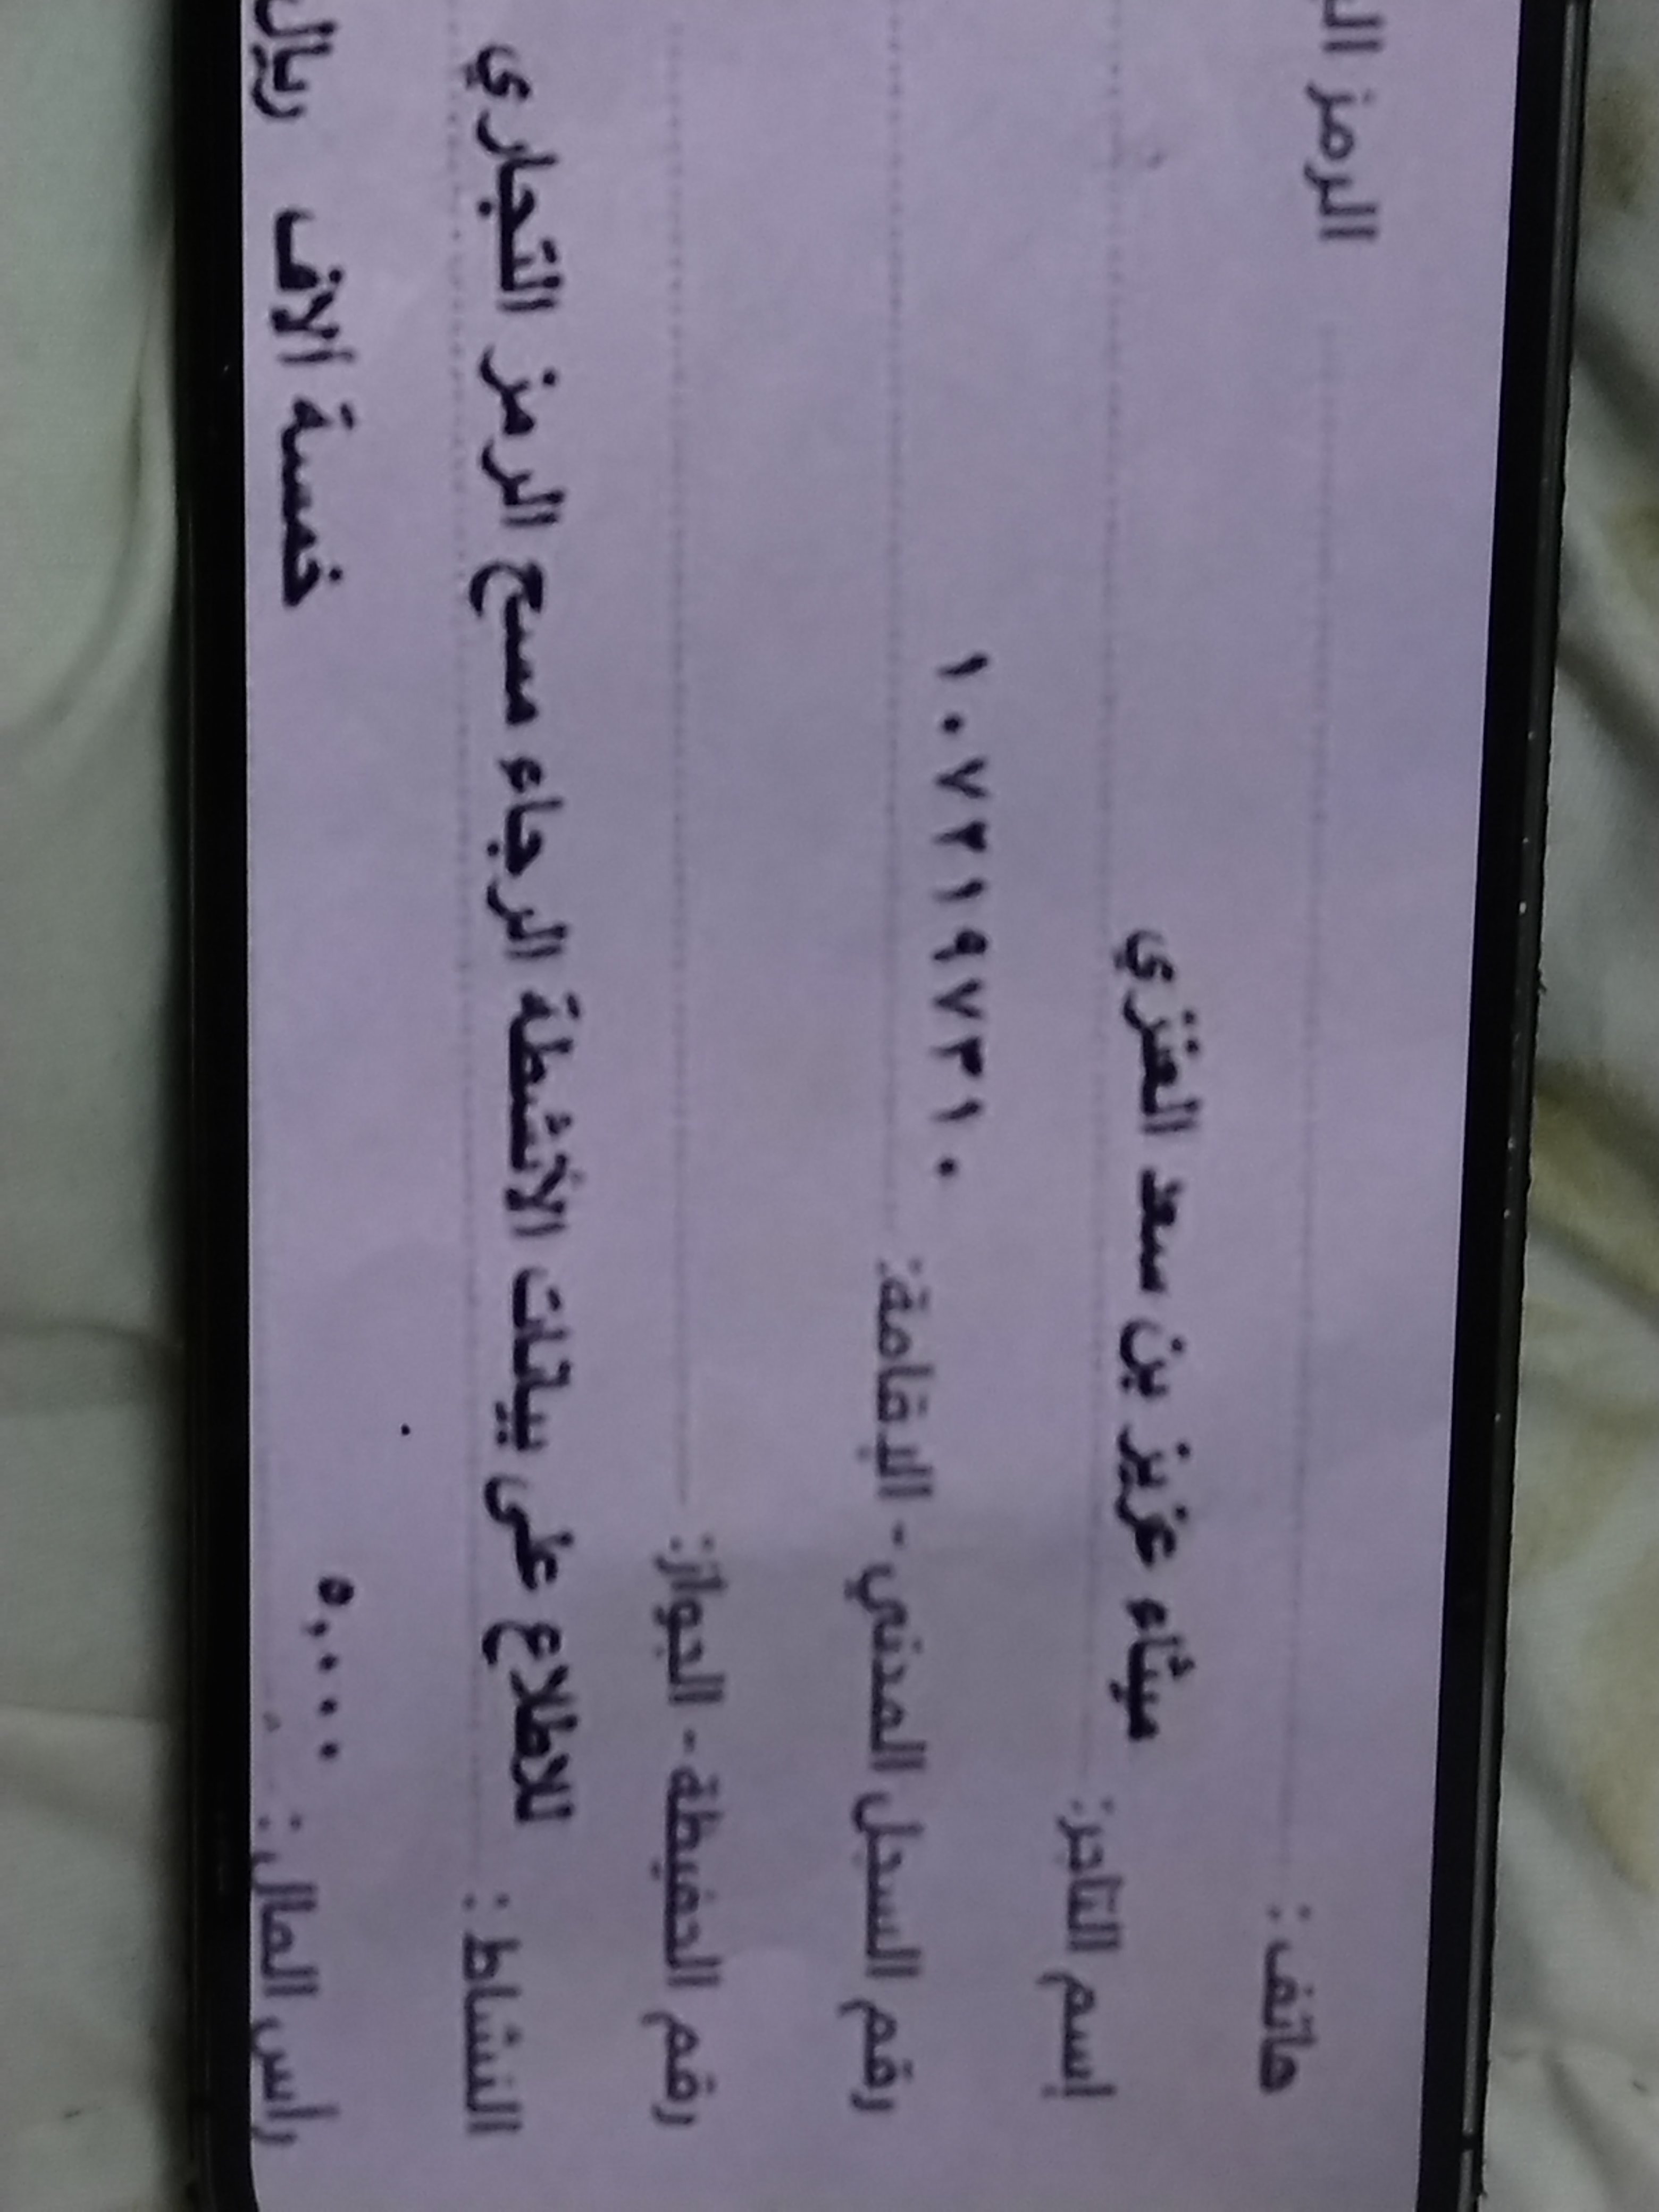 هاتف : الرمز
إسم التاجر: ميثاء عزيز بن سعد العنزي
رقم السجل المدني - الإقامة: ١٠٧٢١٩٧٣١٠
رقم الحفيظة - الجواز:
النشاط : للاطلاع على بيانات الأنشطة الرجاء مسح الرمز التجاري
رأس المال : ٥,٠٠٠ خمسة آلاف ريال